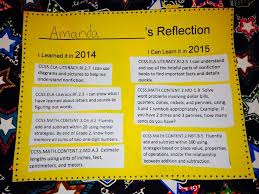 Amanda 's Reflection
I Learned it in 2014
I Can Learn it in 2015
CCSS.ELA-LITERACY.RI.2.7 I can use
diagrams and pictures to help me
understand nonfiction.
CCSS.ELA-LITERACY.RI.2.5 I can understand
and use all the helpful parts of nonfiction
books to find important facts and details
quickly.
CCSS.ELA-Literacy.RF.2.3 I can show what I
have learned about letters and sounds by
figuring out words.
CCSS.MATH.CONTENT.2.MD.C.8 Solve
word problems involving dollar bills,
quarters, dimes, nickels, and pennies, using
$ and ¢ symbols appropriately. Example: If
you have 2 dimes and 3 pennies, how many
cents do you have?
CCSS.MATH.CONTENT.2.OA.B.2 Fluently
add and subtract within 20 using mental
strategies. By end of Grade 2, know from
memory all sums of two one-digit numbers.
CCSS.MATH.CONTENT.2.NBT.B.5 Fluently
add and subtract within 100 using
strategies based on place value, properties
of operations, and/or the relationship
between addition and subtraction.
CCSS.MATH.CONTENT.2.MD.A.3 Estimate
lengths using units of inches, feet,
centimeters, and meters.